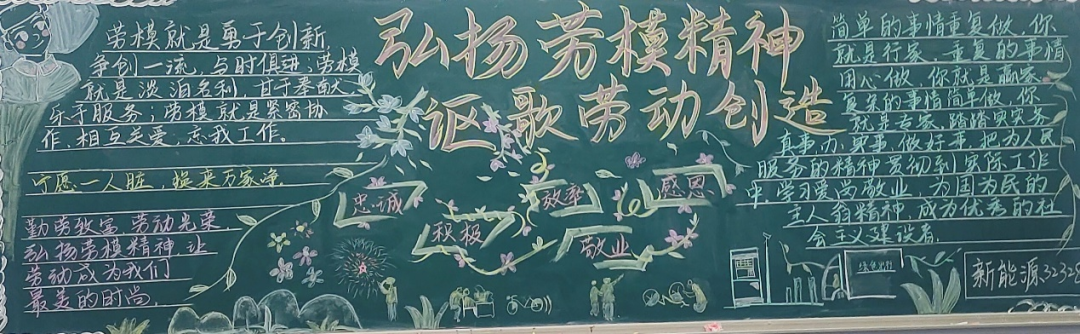 弘扬劳模精神
讴歌劳动创造
劳模就是勇于创新
争创一流,与时俱进;劳模
就是淡泊名利,甘于奉献
乐于服务;劳模就是紧密协
作,相互关爱,忘我工作。
宁愿一人脏,换来万家净。
勤劳致富,劳动光荣。
弘扬劳模精神让
劳动成为我们
最美的时尚。
忠诚
积极
效率
敬业
感恩
简单的事情重复做,你
就是行家,重复的事情
用心做,你就是赢家
复杂的事情简单做,你
就是专家,踏踏实实务
真事,办实事,做好事,把为人民
服务的精神贯彻到实际工作
中,学习爱岗敬业,为国为民的
主人翁精神,成为优秀的社
会主义建设者。
新能源32329